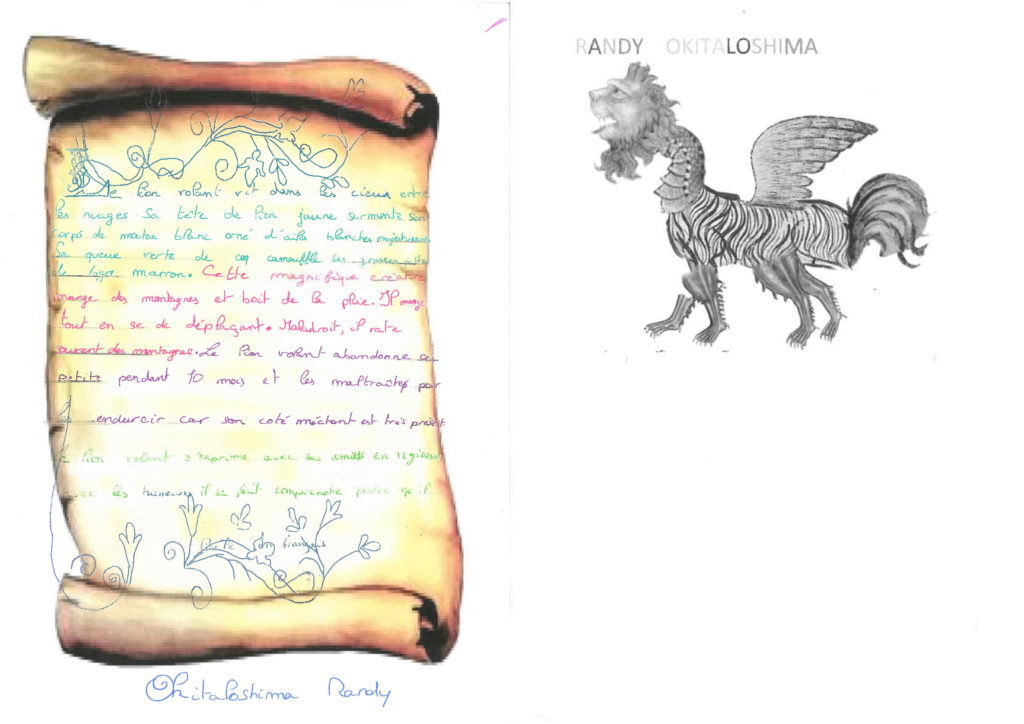 Le lion volant vit dans les cieux entre
les nuages Sa tête de lion jaune surmonte son
corps de mouton blanc orné d'ailes blanches majestueuses
Sa queue verte de coq camouffle ses grosses
de tigre marron. Cette magnifique créature
mange des montagnes et boit de la pluie. Il mange
tout en se de déplaçant. Maladroit, il rate
souvent des montagnes. Le lion volant abandonne ses
petits pendant 10 mois et les maltraites pour
les endurcir car son coté méchant est très présent
Le lion volant s'exprime avec ses amis en rugissant
avec les humains il se fait comprendre parce qu'il
parle
Okitaloshima Randy
RANDY OKITALOSHIMA